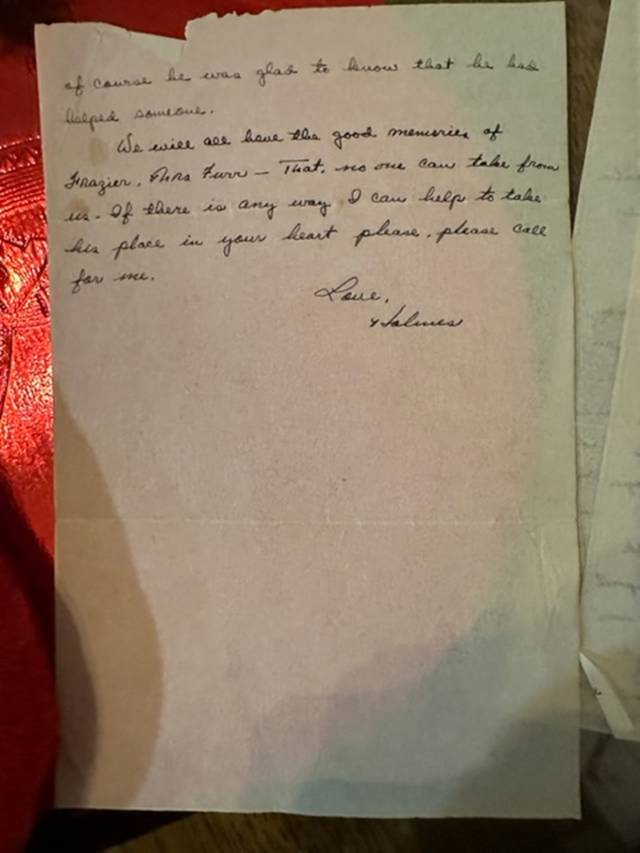 of course he was glad to know that he had
helped someone.
We will all have the good memories of
Frazier, Mrs Furr — That, no one can take from
us. If there is any way I can help to take
his place in your heart please, please call
for me.
Love,
Holmes